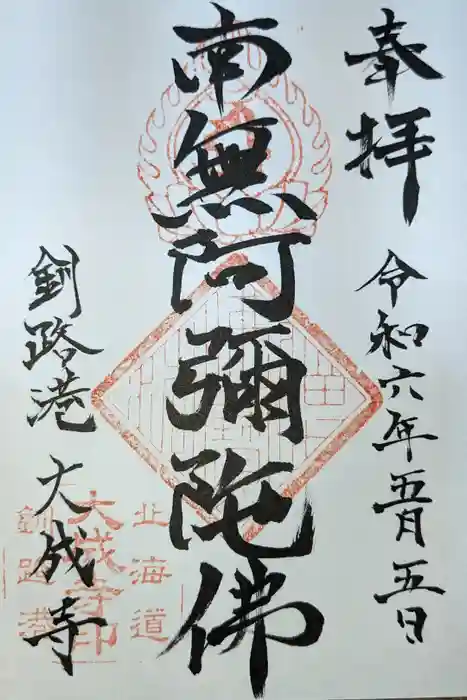 奉拝
令和六年五月五日
南無阿彌陀佛
釧路港 大成寺
北海道
大成寺印
釧路港